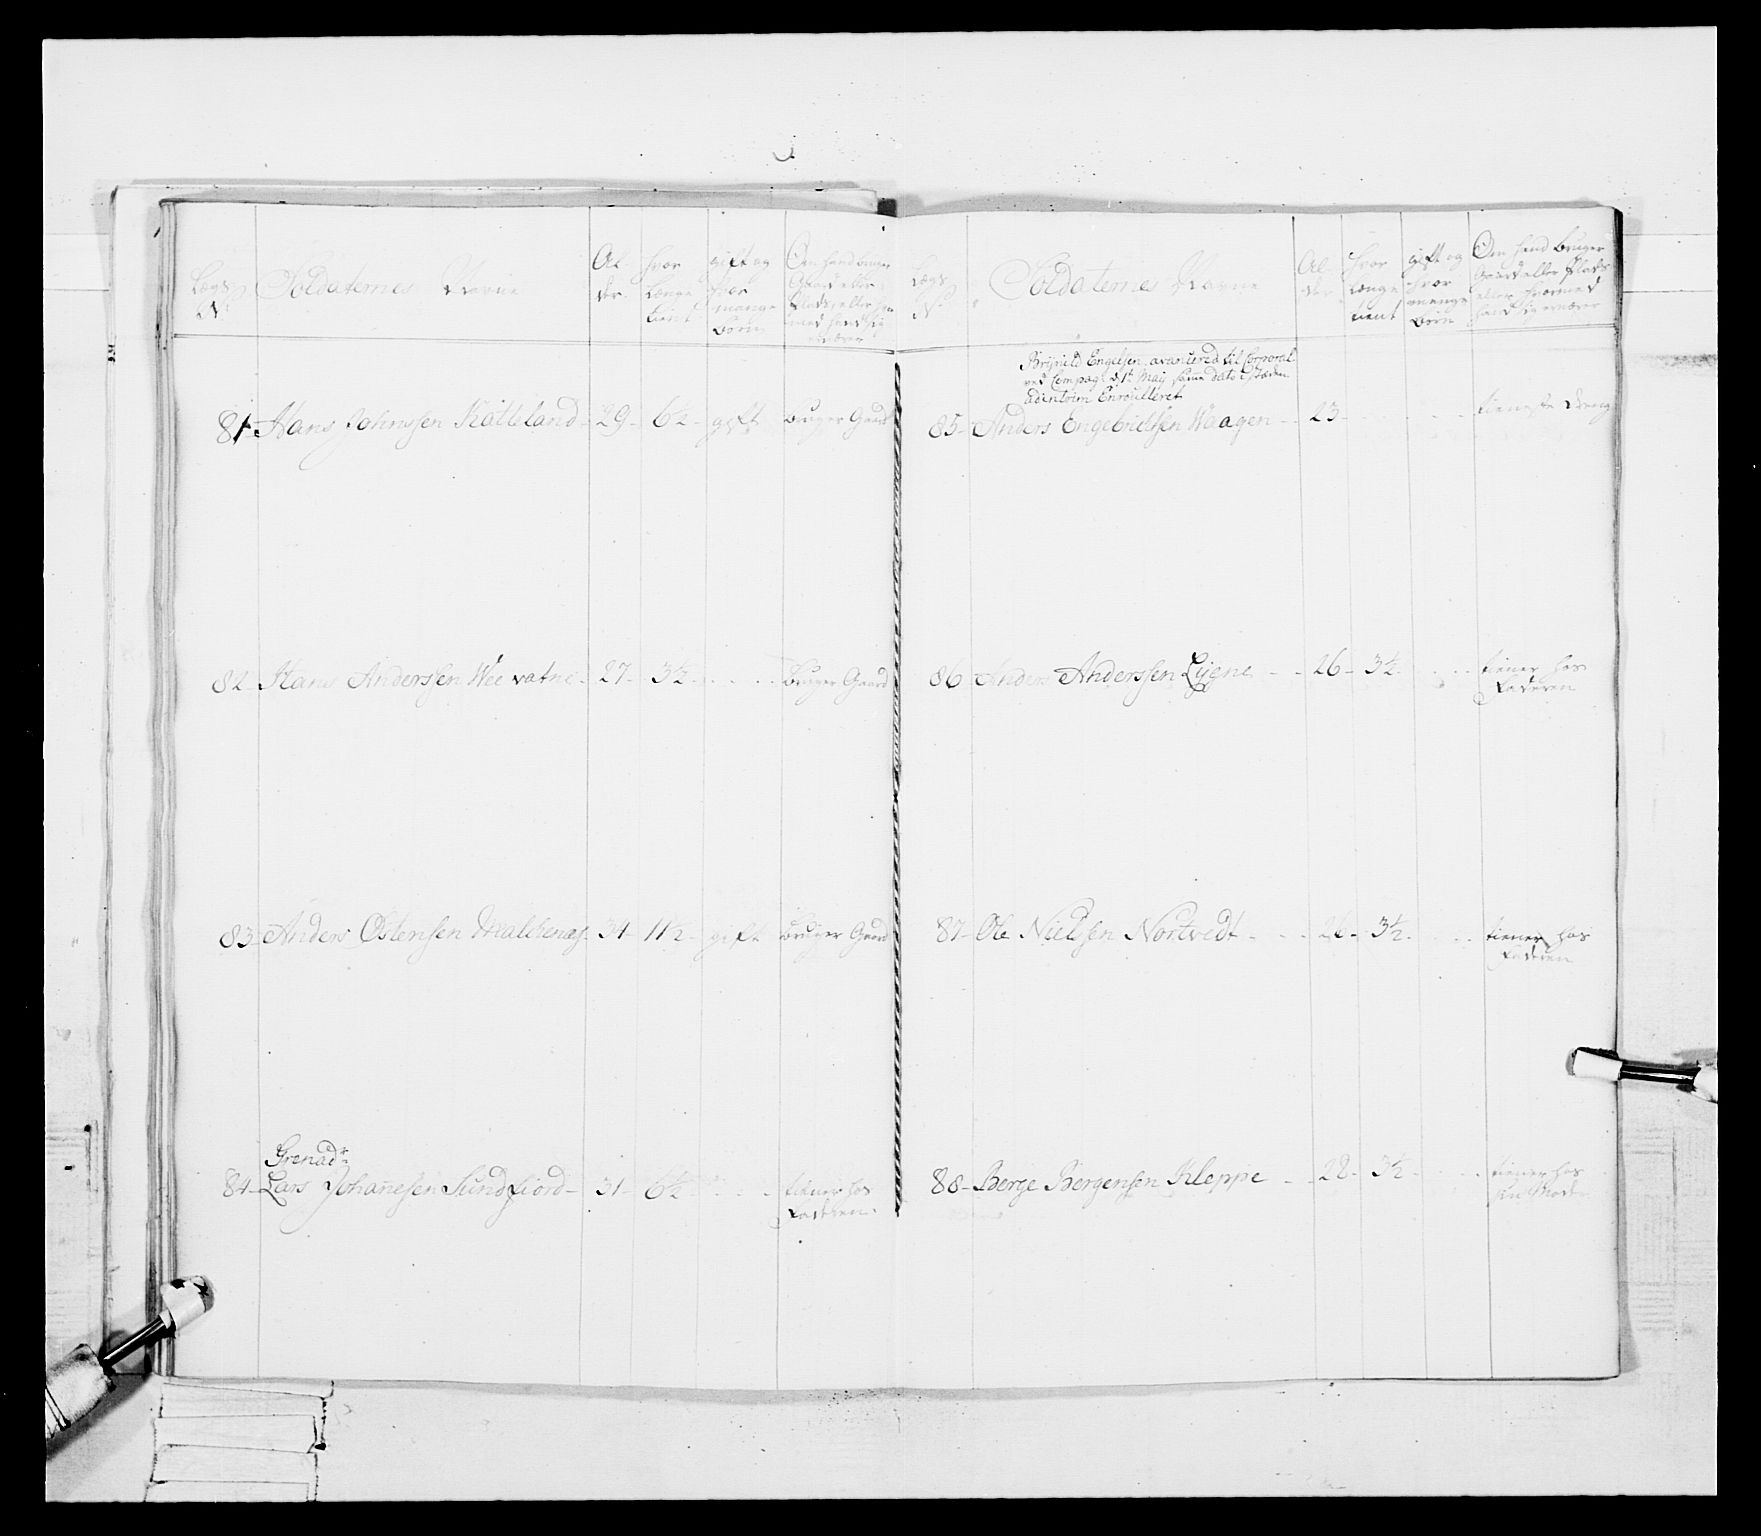 Lægs
No
Soldaternes Navne
Al
der
hvor
længe
tient
gift og
hvor
mange
børn
Om hand bruger
Gaard eller
Plads, eller hvor
med hand sig
ernærer
81 - Hans Johnssen Kalteland - 29 - 6½ - gift bruger Gaard
82 - Hans Anderssen Weevatne - 27 - 3½ - . . . bruger Gaard
83 - Anders Østensen Malchenæs - 34 - 11½ - gift bruger Gaard
Grenadr
84 - Lars Johanesen Sundfiord - 31 - 6½ - . . . tiener hos
Faderen
Lægs
No
Soldaternes Navne
Al
der
hvor
længe
tient
gift og
hvor
mange
børn
Om hand bruger
Gaard eller Plads
eller hvormed
hand sig ernærer
Brynild Engelsen avancered til Corporal
ved Compagt d. 1t Maij samme dato i Stæden
adinterim Enroulleret
85 - Anders Engebrictssen Waagen - - 23 - . . . tieneste Dreng
86 - Anders Anderssen Lygne - - 26 - 3½ . . . tiener hos
Faderen
87 - Ole Nielssen Nortvedt - . . . 26 - 3½ - . . . tiener hos
Faderen
88 - Berge Bergensen Kleppe - . . 28 - 3½ - . . . tiener hos
sin Moder